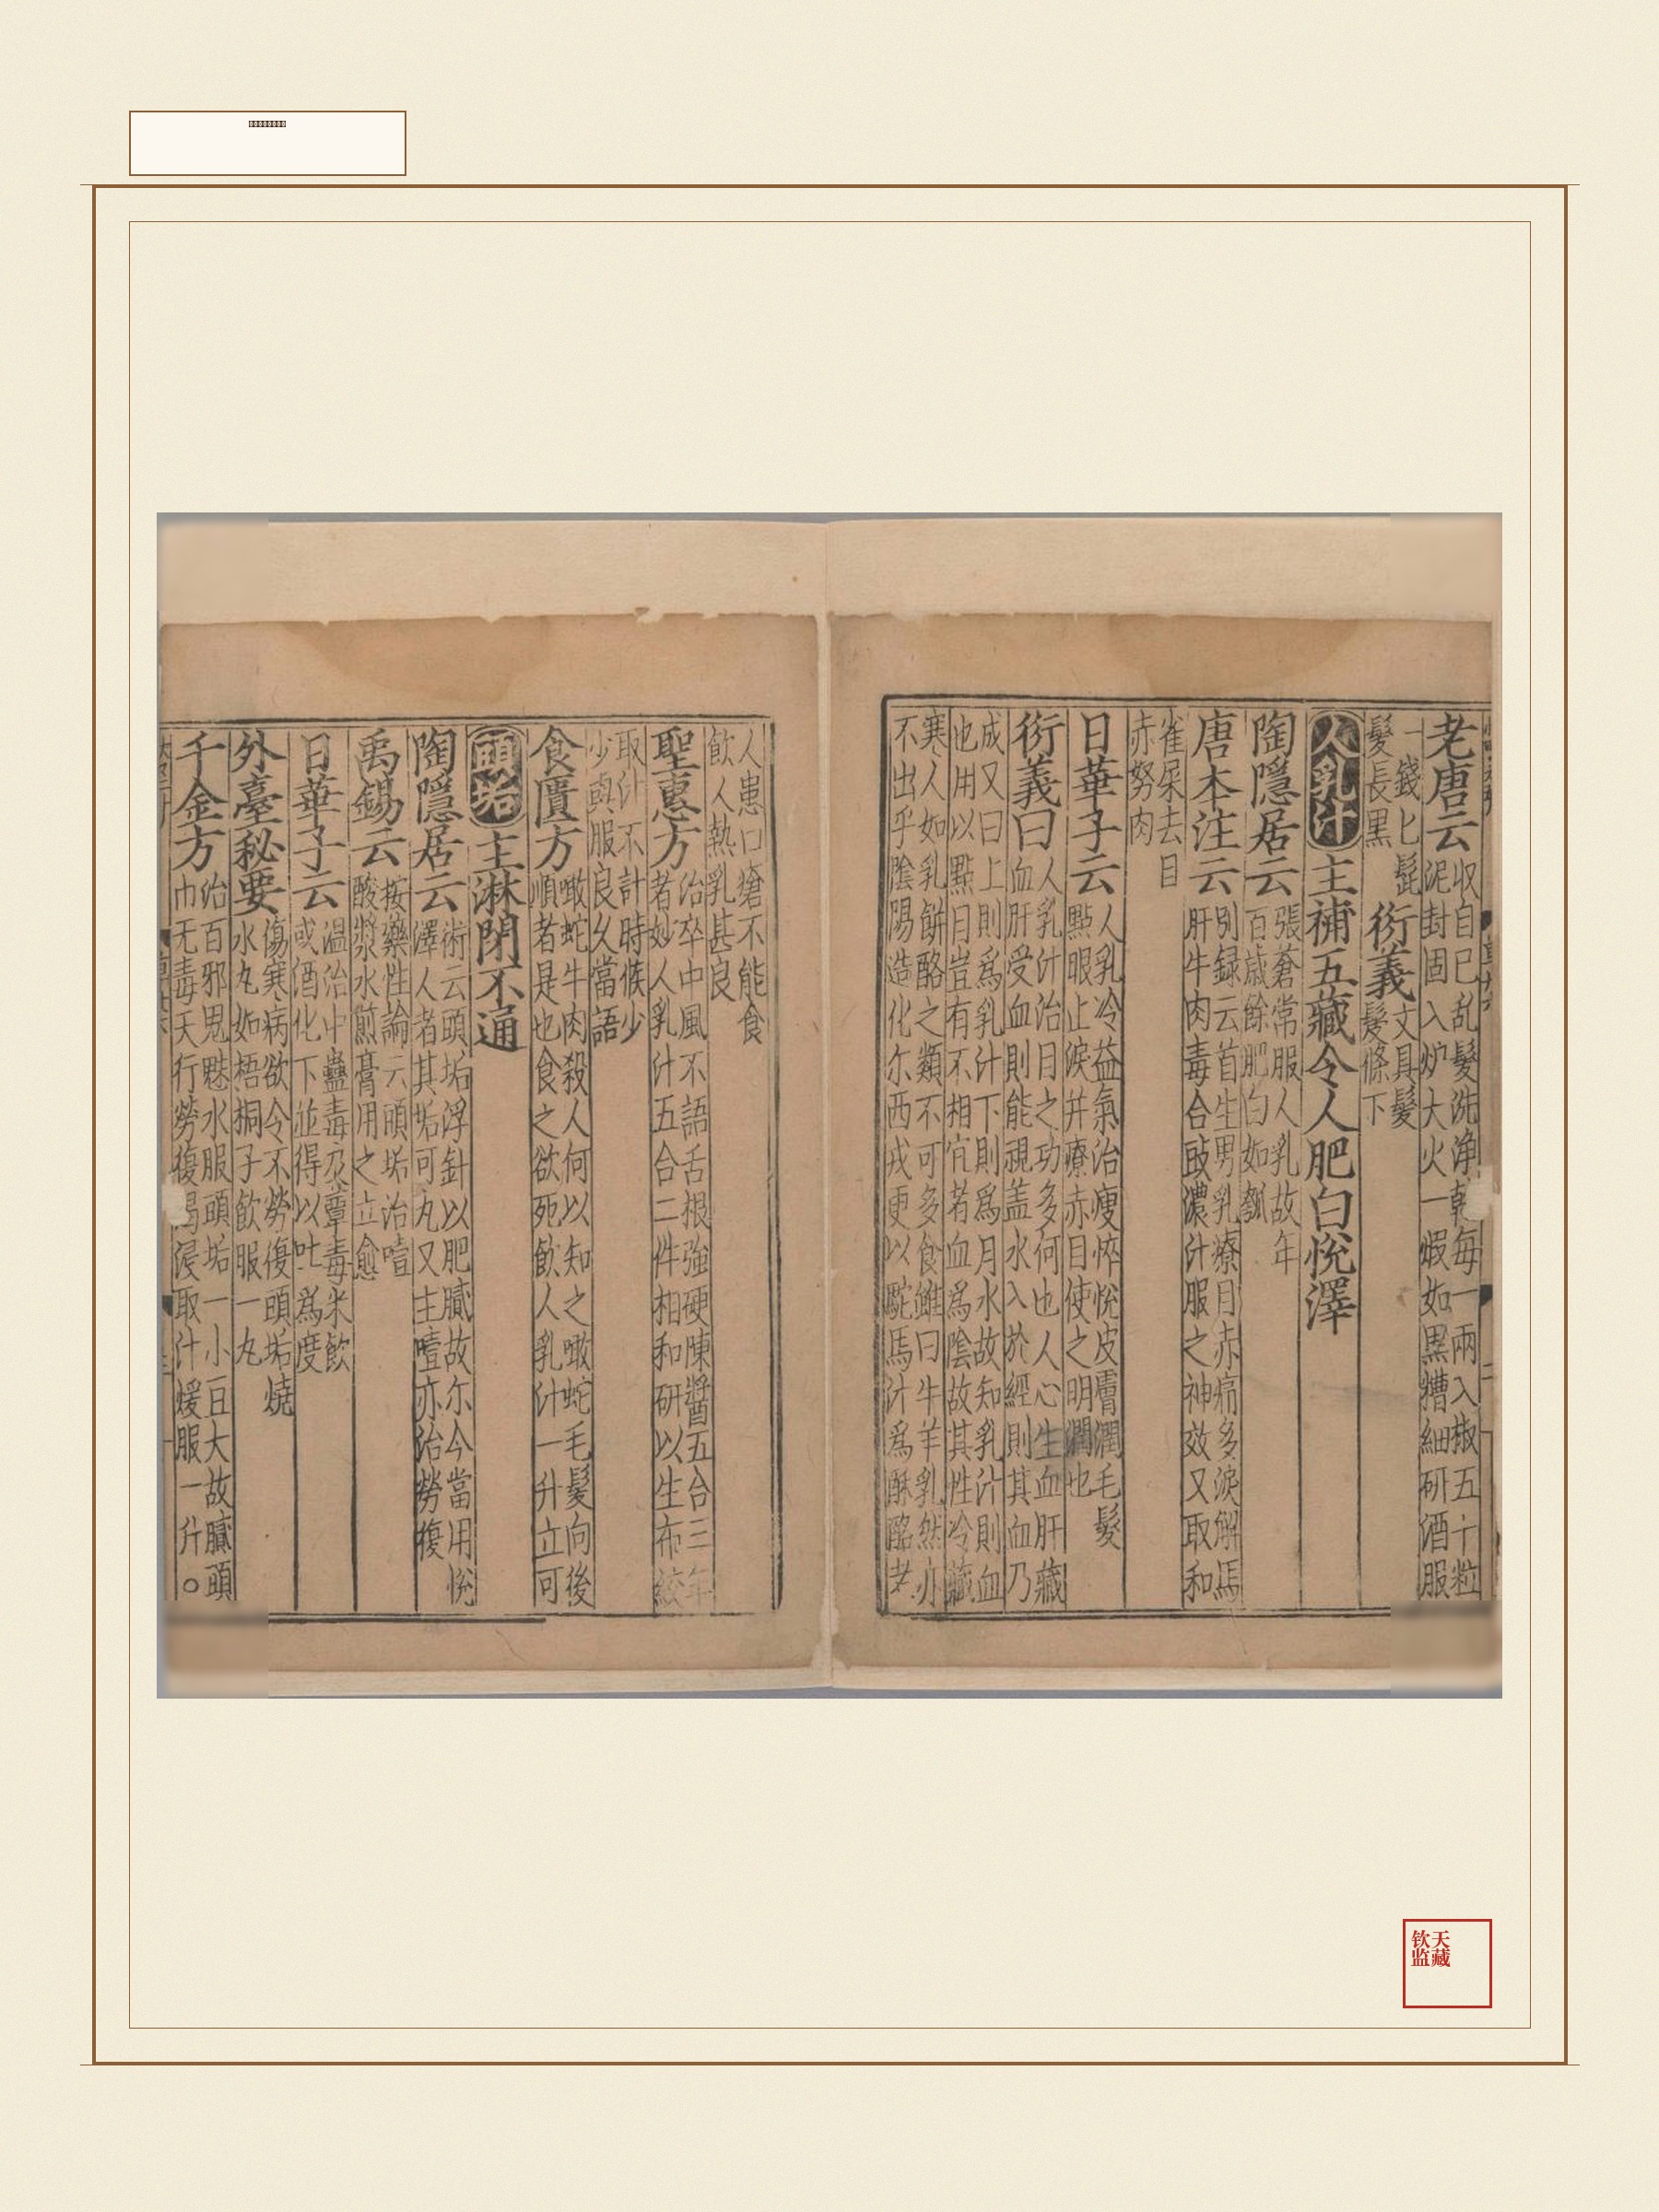 老唐云收自己乱髮洗淨乾每一兩入椒五十粒
泥封固入炉大火一煆如黑糟細研酒服
一錢匕髭
髮長黑
衍義文具髮
髲條下
人乳汁主補五藏令人肥白悅澤
陶隱居云張蒼常服人乳故年
百歲餘肥白如瓠
唐本注云別録云首生男乳療目赤痛多淚解馬
肝牛肉毒合豉濃汁服之神效又取和
雀屎去目
赤努肉
日華子云人乳冷益氣治瘦悴悅皮膚潤毛髮
點眼止淚并療赤目使之明潤也
衍義曰人乳汁治目之功多何也人心生血肝藏
血肝受血則能視盖水入於經則其血乃
成又曰上則爲乳汁下則爲月水故知乳汁則血
也用以點目豈有不相宜者血爲陰故其性冷藏
寒人如乳餅酪之類不可多食雖曰牛羊乳然亦
不出乎陰陽造化尓西戎更以駝馬汁爲酥酪老
人患口瘡不能食
飲人熱乳甚良
聖惠方治卒中風不語舌根強硬陳醬五合三年
者妙人乳汁五合二件相和研以生布絞
取汁不計時候少
少與服良久當語
食醫方噉蛇牛肉殺人何以知之噉蛇毛髮向後
順者是也食之欲死飲人乳汁一升立可
頭垢主淋閉不通
陶隱居云術云頭垢浮針以肥膩故尓今當用悅
澤人者其垢可丸又主噎亦治勞復
禹錫云按藥性論云頭垢治噎
酸漿水煎膏用之立愈
日華子云温治中蠱毒及蕈毒米飲
或酒化下並得以吐爲度
外臺秘要傷寒病欲令不勞復頭垢燒
水丸如梧桐子飲服一丸
千金方治百邪鬼魅水服頭垢一小豆大故膩頭
巾无毒天行勞復渴浸取汁煖服一升○
钦天
监藏